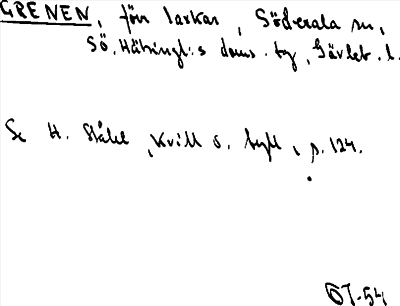 GRENEN, förr laxkar, Söderala sn,
Sö. Hälsingl:s doms. tg, Gävleb. l.
Se H. Ståhl, Kvill o. tyll, p. 124.
ÖT-54